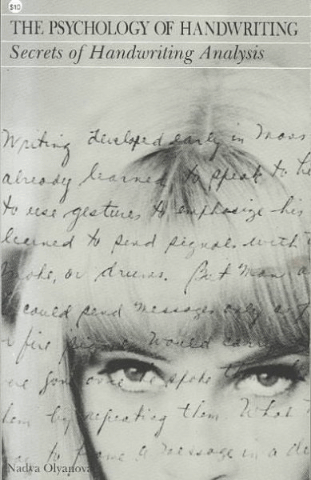 $10
THE PSYCHOLOGY OF HANDWRITING
Secrets of Handwriting Analysis
Writing developed early in
already learned to speak to
to use gestures to emphasize his
learned to send signals with
or drums. But
could send messages only
fire would
gone he spoke
by repeating them. What
to frame a message in a
Nadya Olyanova